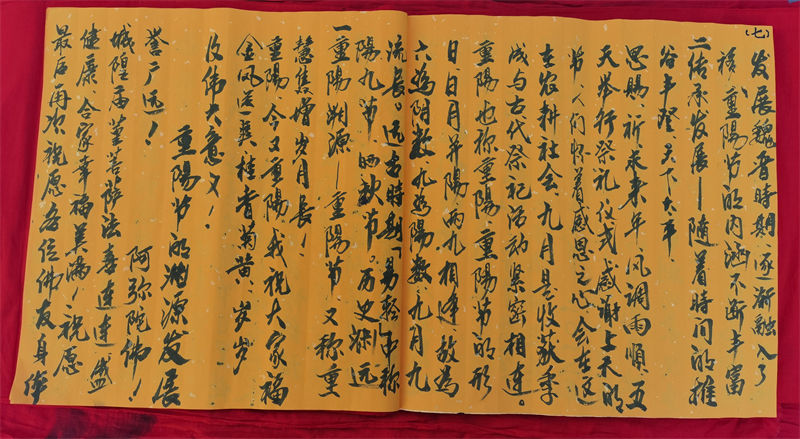 最后再次祝愿各位佛友身体
健康、合家幸福美满！祝愿
城隍庙菩萨法喜连连，盛
誉广远！
阿弥陀佛！
重陽节的渊源发展
及伟大意义！
金风送爽桂香菊黄，岁岁
重陽，今又重陽，我祝大家福
慧增岁月長！
一重陽渊源—重陽节又称重
陽九节、晒秋节。历史渊远
流長。远古時期《易經》中称
六為阴数，九為陽数，九月九
日日月并陽，两九相逢故為
重陽也称重陽，重陽节的形
成与古代祭祀活动紧密相连。
在农耕社会，九月是收获季
节，人们怀着感恩之心，会在这
天举行祭礼仪式，感谢上天的
恩賜，祈求来年风調雨順，五
谷丰登，天下太平。
二传承发展—随着時间的推
移，重陽节的内涵不断丰富
发展，魏晋時期，逐渐融入了
（七）